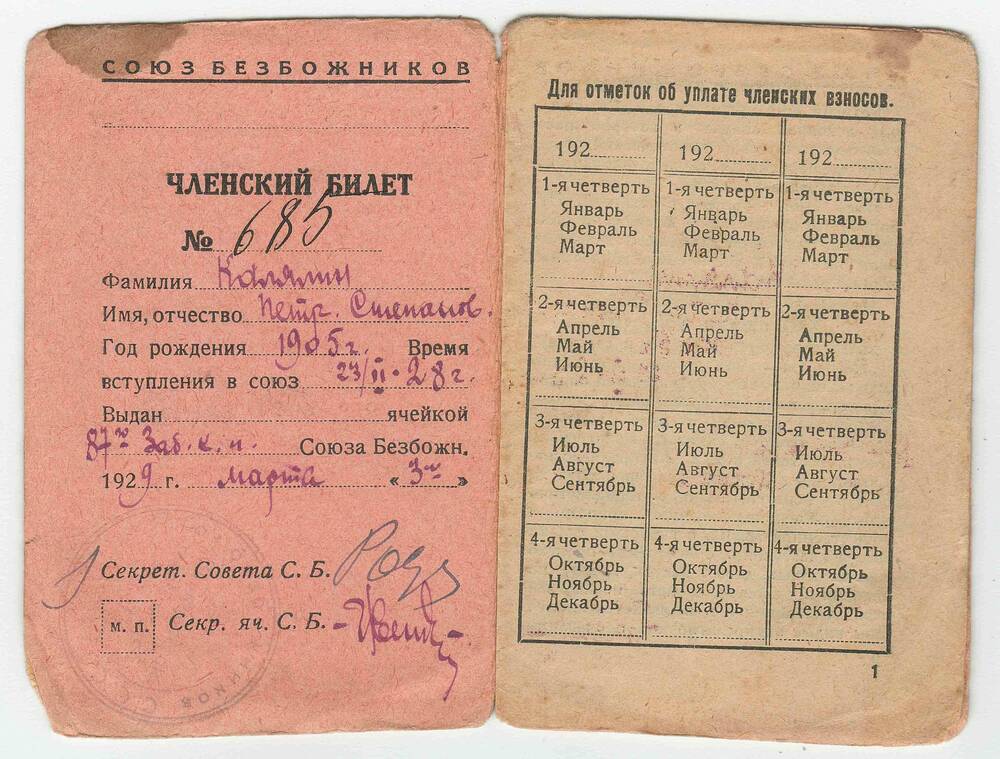 СОЮЗ БЕЗБОЖНИКОВ
ЧЛЕНСКИЙ БИЛЕТ
№ 685
Фамилия Калялин
Имя, отчество Петр. Степанов.
Год рождения 1905 г. Время
вступления в союз 23/II-28 г.
Выдан ячейкой
87 Заб. к. п. Союза Безбожн.
1929 г. марта « 3 »
Секрет. Совета С. Б.
м. п. Секр. яч. С. Б.
Для отметок об уплате членских взносов.
192 192 192
1-я четверть 1-я четверть 1-я четверть
Январь Январь Январь
Февраль Февраль Февраль
Март Март Март
2-я четверть 2-я четверть 2-я четверть
Апрель Апрель Апрель
Май Май Май
Июнь Июнь Июнь
3-я четверть 3-я четверть 3-я четверть
Июль Июль Июль
Август Август Август
Сентябрь Сентябрь Сентябрь
4-я четверть 4-я четверть 4-я четверть
Октябрь Октябрь Октябрь
Ноябрь Ноябрь Ноябрь
Декабрь Декабрь Декабрь
1